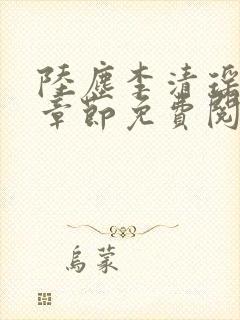 陸塵李清瑤
章節免費閱
烏蒙